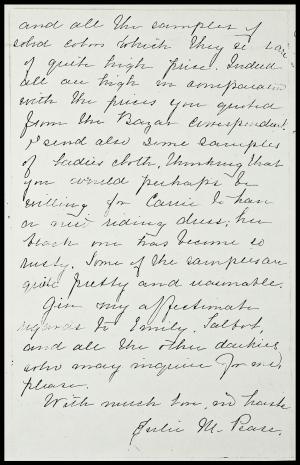 and all the samples of
solid colors which they se
of quite high price. Indeed
all are high in comparison
with the prices you quoted
from the Bazar Correspondent.
I send also some samples
of ladies cloth, thinking that
you would perhaps be
willing for Carrie to have
a new riding dress; her
black one has become so
rusty. Some of the samples are
quite pretty and reasonable.
Give my affectionate
regards to Emily, Talbot,
and all the other darkies
who may inquire for me,
please.
With much love, in haste
Julie M. Pease.